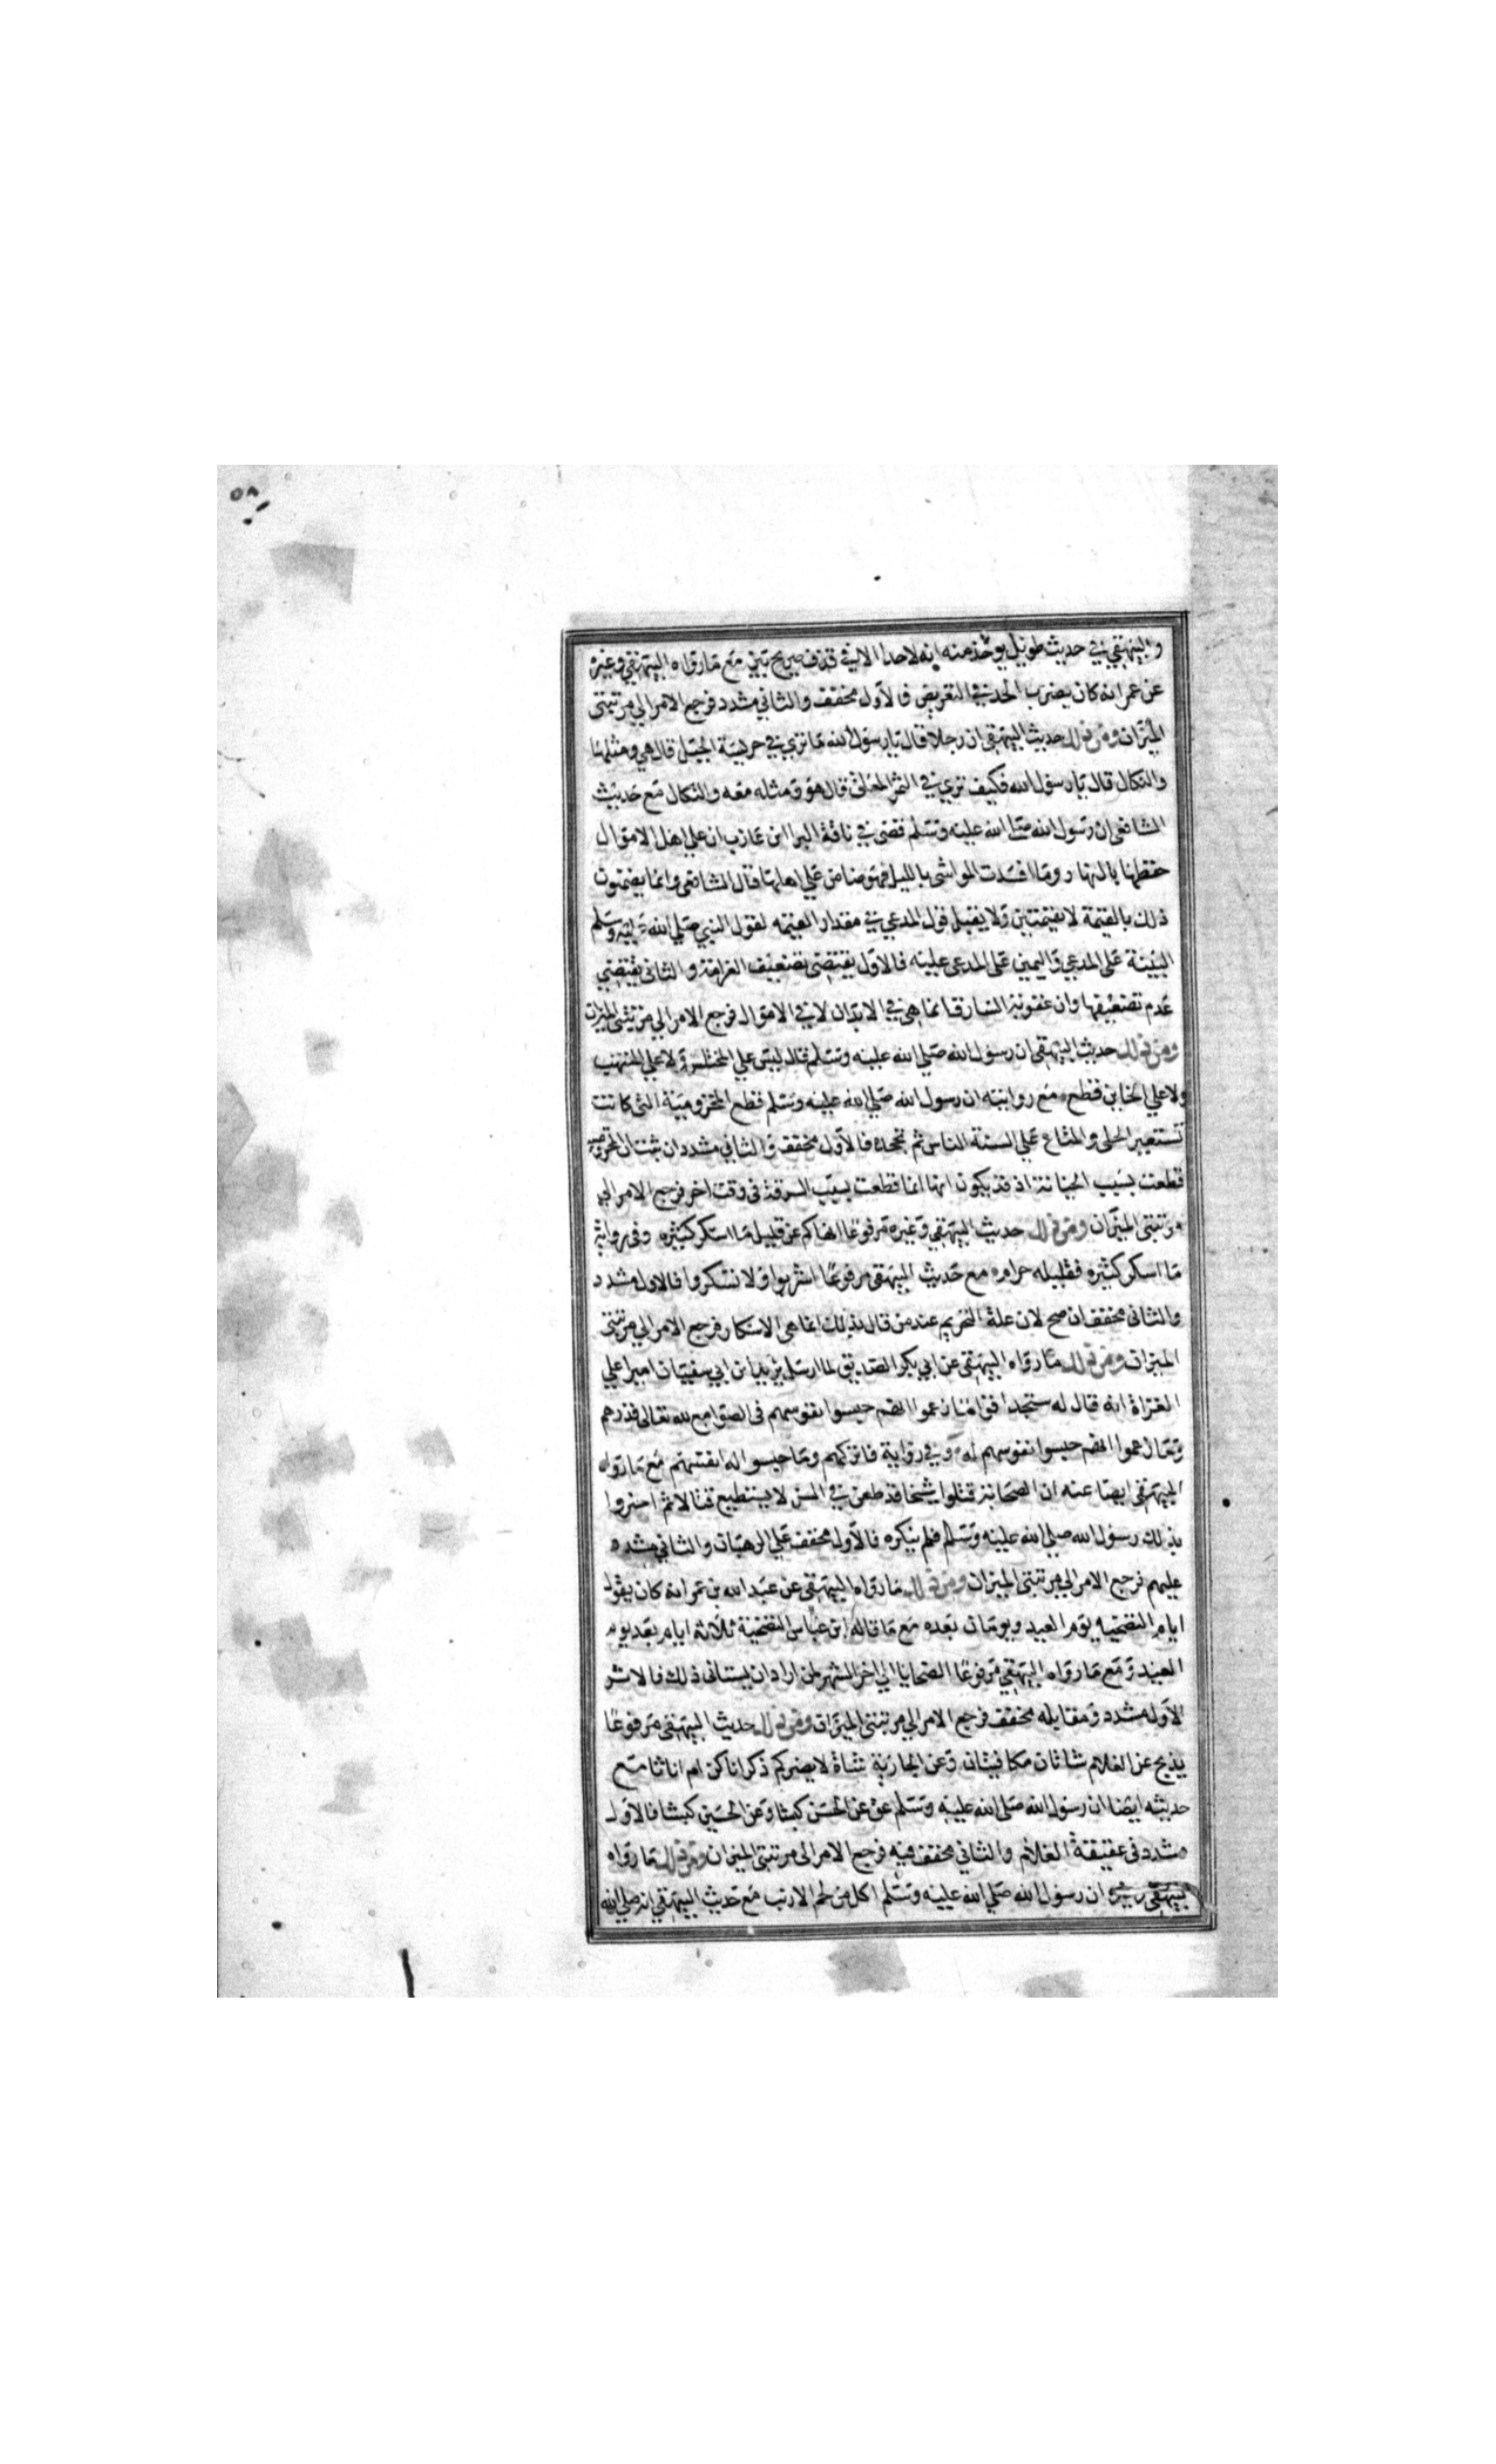 ٥٨
والبيهقي في حديث طويل يوخذ منه انه لاحد الا في قذف صريح بيّن مع مارواه البيهقي وغيره
عن عمر انه كان يضرب الحد في التعريض فالاول مخفف والثاني مشدد فرجع الامر الي مرتبتي
الميزان ومن ذلك حديث البيهقي ان رجلا قال يارسول الله ماتري في حريسة الجبل قال هي ومثلها
والنكال قال يارسول الله فكيف تري في الثمر المعلق قال هو ومثله معه والنكال مع حديث
الشافعي ان رسول الله صلي الله عليه وسلم قضي في ناقة البرا ابن عازب ان علي اهل الاموال
حفظها بالنهار وما افسدت المواشي بالليل فهو ضامن علي اهلها قال الشافعي وانما يضمنون
ذلك بالقيمة لا بقيمتين ولا يقبل قول المدعي في مقدار القيمه لقول النبي صلي الله عليه وسلم
البينة علي المدعي واليمين علي المدعي عليه فالاول يقتضي تضعيف الغرامة والثاني يقتضي
عدم تضعيفها وان عقوبة السارق انما هي في الابدان لا في الاموال فرجع الامر الي مرتبتي الميزان
ومن ذلك حديث البيهقي ان رسول الله صلي الله عليه وسلم قال ليس علي المختلس ولا علي المنتهب
ولا علي الخاين قطع مع روايته ان رسول الله صلي الله عليه وسلم قطع المخزومية التي كانت
تستعير الحلي والمتاع علي السنة الناس ثم تجحده فالاول مخفف والثاني مشدد ان ثبت ان المخزومية
قطعت بسبب الخيانة اذ قد يكون انها انما قطعت بسبب السرقة في وقت اخر فرجع الامر الي
مرتبتي الميزان ومن ذلك حديث البيهقي وغيره مرفوعا انهاكم عن قليل ما اسكر كثيره وفي رواية
ما اسكر كثيره فقليله حرام مع حديث البيهقي مرفوعا اشربوا ولا تسكروا فالاول مشدد
والثاني مخفف ان صح لان علة التحريم عند من قال بذلك انما هي الاسكار فرجع الامر الي مرتبتي
الميزان ومن ذلك مارواه البيهقي عن ابي بكر الصديق لما ارسل يزيد ابن ابي سفيان اميرا علي
الغزاة انه قال له ستجد اقواما زعموا انهم حبسوا نفوسهم في الصوامع لله تعالي فذرهم
وما زعموا انهم حبسوا نفوسهم له وفي رواية فاتركهم وما حبسوا له انفسهم مع مارواه
البيهقي ايضا عنه ان الصحابة قتلوا شيخا قد طعن في السن لا يستطيع قتالا ثم اخبروا
بذلك رسول الله صلي الله عليه وسلم فلم ينكره فالاول مخفف علي الرهبان والثاني مشدد
عليهم فرجع الامر الي مرتبتي الميزان ومن ذلك مارواه البيهقي عن عبد الله بن عمر انه كان يقول
ايام التضحيه يوم العيد ويومان بعده مع ما قاله ابن عباس التضحية ثلاثة ايام بعد يوم
العيد ومع مارواه البيهقي مرفوعا الضحايا الي اخر الشهر لمن اراد ان يستاني ذلك فالاثر
الاول مشدد ومقابله مخفف فرجع الامر الي مرتبتي الميزان ومن ذلك حديث البيهقي مرفوعا
يذبح عن الغلام شاتان مكافيتان وعن الجارية شاة لا يضركم ذكرانا كن ام اناثا مع
حديثه ايضا ان رسول الله صلي الله عليه وسلم عق عن الحسن كبشا وعن الحسين كبشا فالاول
مشدد في عقيقة الغلام والثاني مخفف فيه فرجع الامر الي مرتبتي الميزان ومن ذلك مارواه
البيهقي وغيره ان رسول الله صلي الله عليه وسلم اكل من لحم الارنب مع حديث البيهقي انه صلي الله